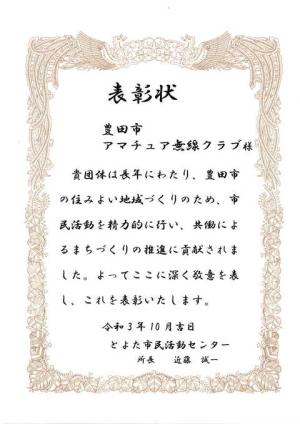 表彰状
豊田市
アマチュア無線クラブ様
貴団体は長年にわたり、豊田市
の住みよい地域づくりのため、市
民活動を精力的に行い、共働によ
るまちづくりの推進に貢献されま
した。よってここに深く敬意を表
し、これを表彰いたします。
令和3年10月吉日
とよた市民活動センター
所長 近藤 誠一